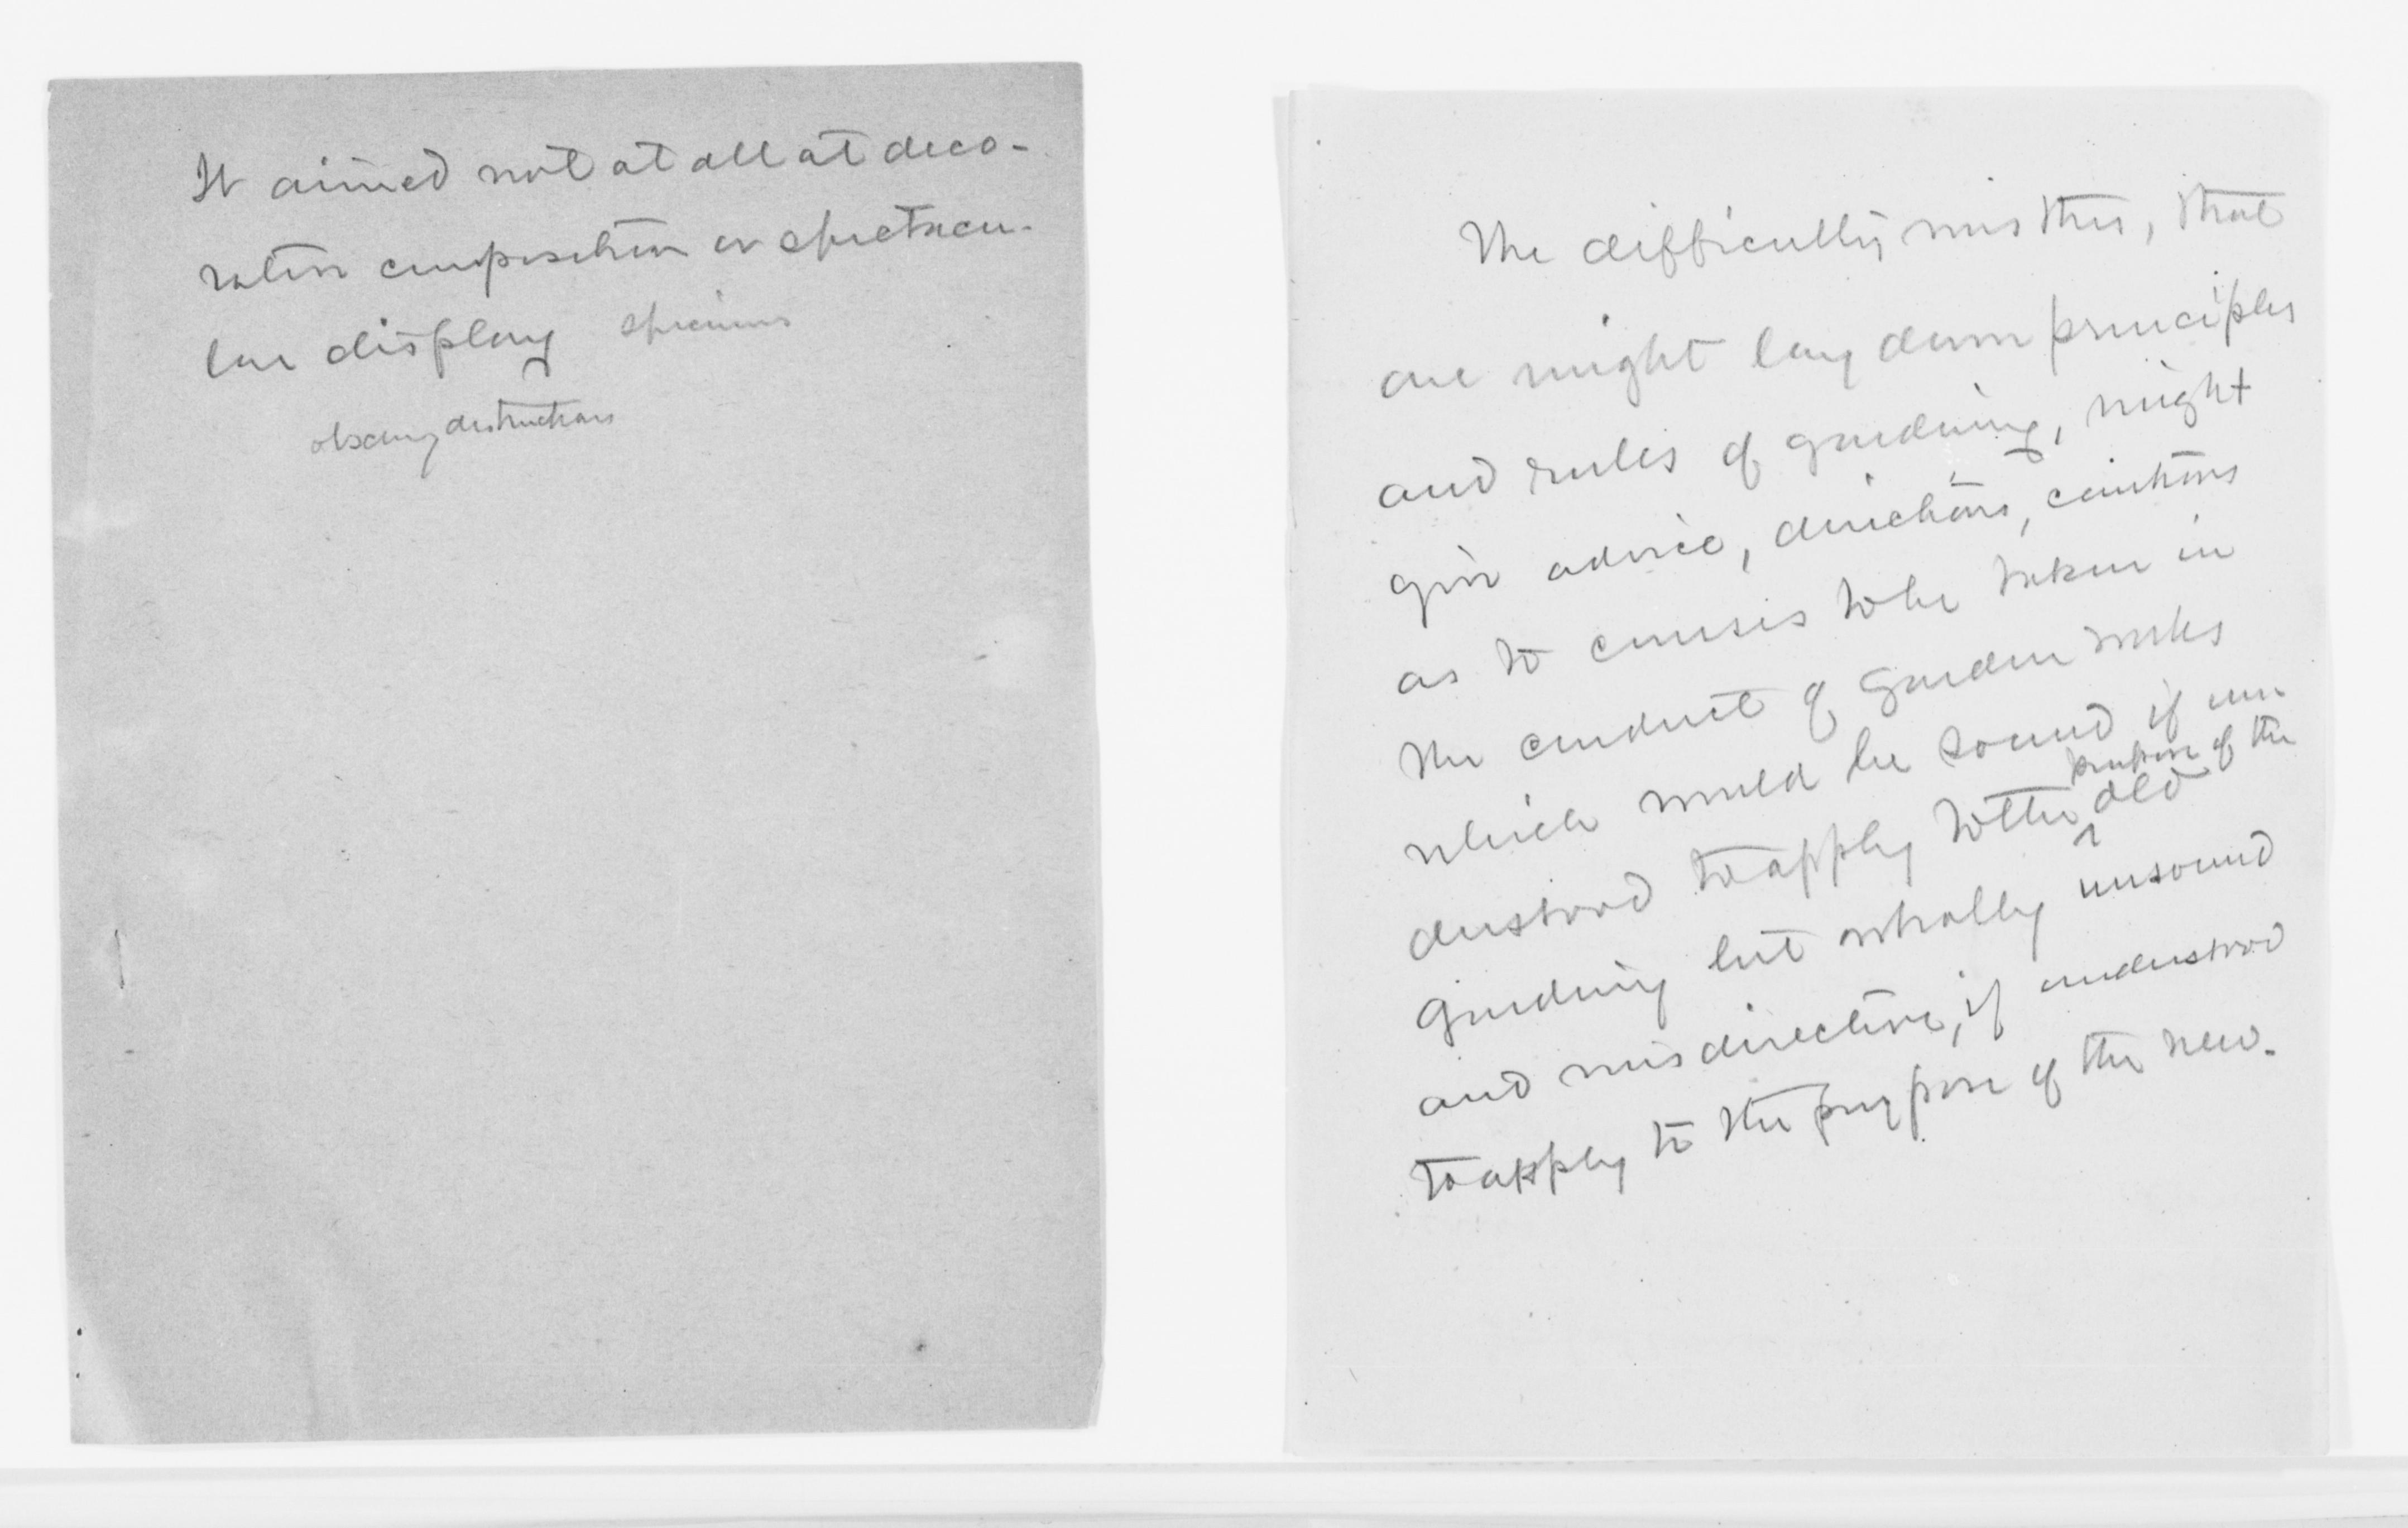 It aimed not at all at deco-
rative composition or spectacu-
lar display specimens
obscuring distinctions
The difficulty was this, that
one might lay down principles
and rules of gardening, might
give advice, directions, cautions
as to courses to be taken in
the conduct of garden works
which would be sound if un-
purpose of the
derstood to apply to the old
gardening but wholly unsound
and misdirective, if understood
to apply to the purpose of the new.